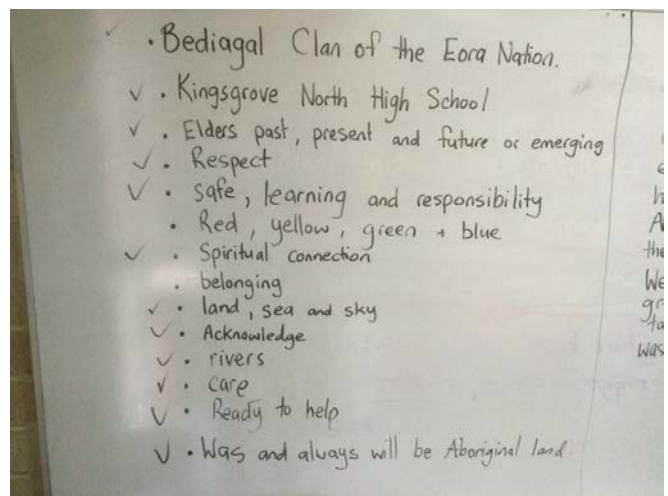 ✓ . Bediagal Clan of the Eora Nation.
✓ . Kingsgrove North High School
✓ . Elders past, present and future or emerging
✓ . Respect
✓ . safe, learning and responsibility
. Red, yellow, green + blue
✓ . Spiritual connection
. belonging
✓ . land, sea and sky
✓ . Acknowledge
✓ . rivers
✓ . care
✓ . Ready to help
✓ . Was and always will be Aboriginal land.
A
the
We
was